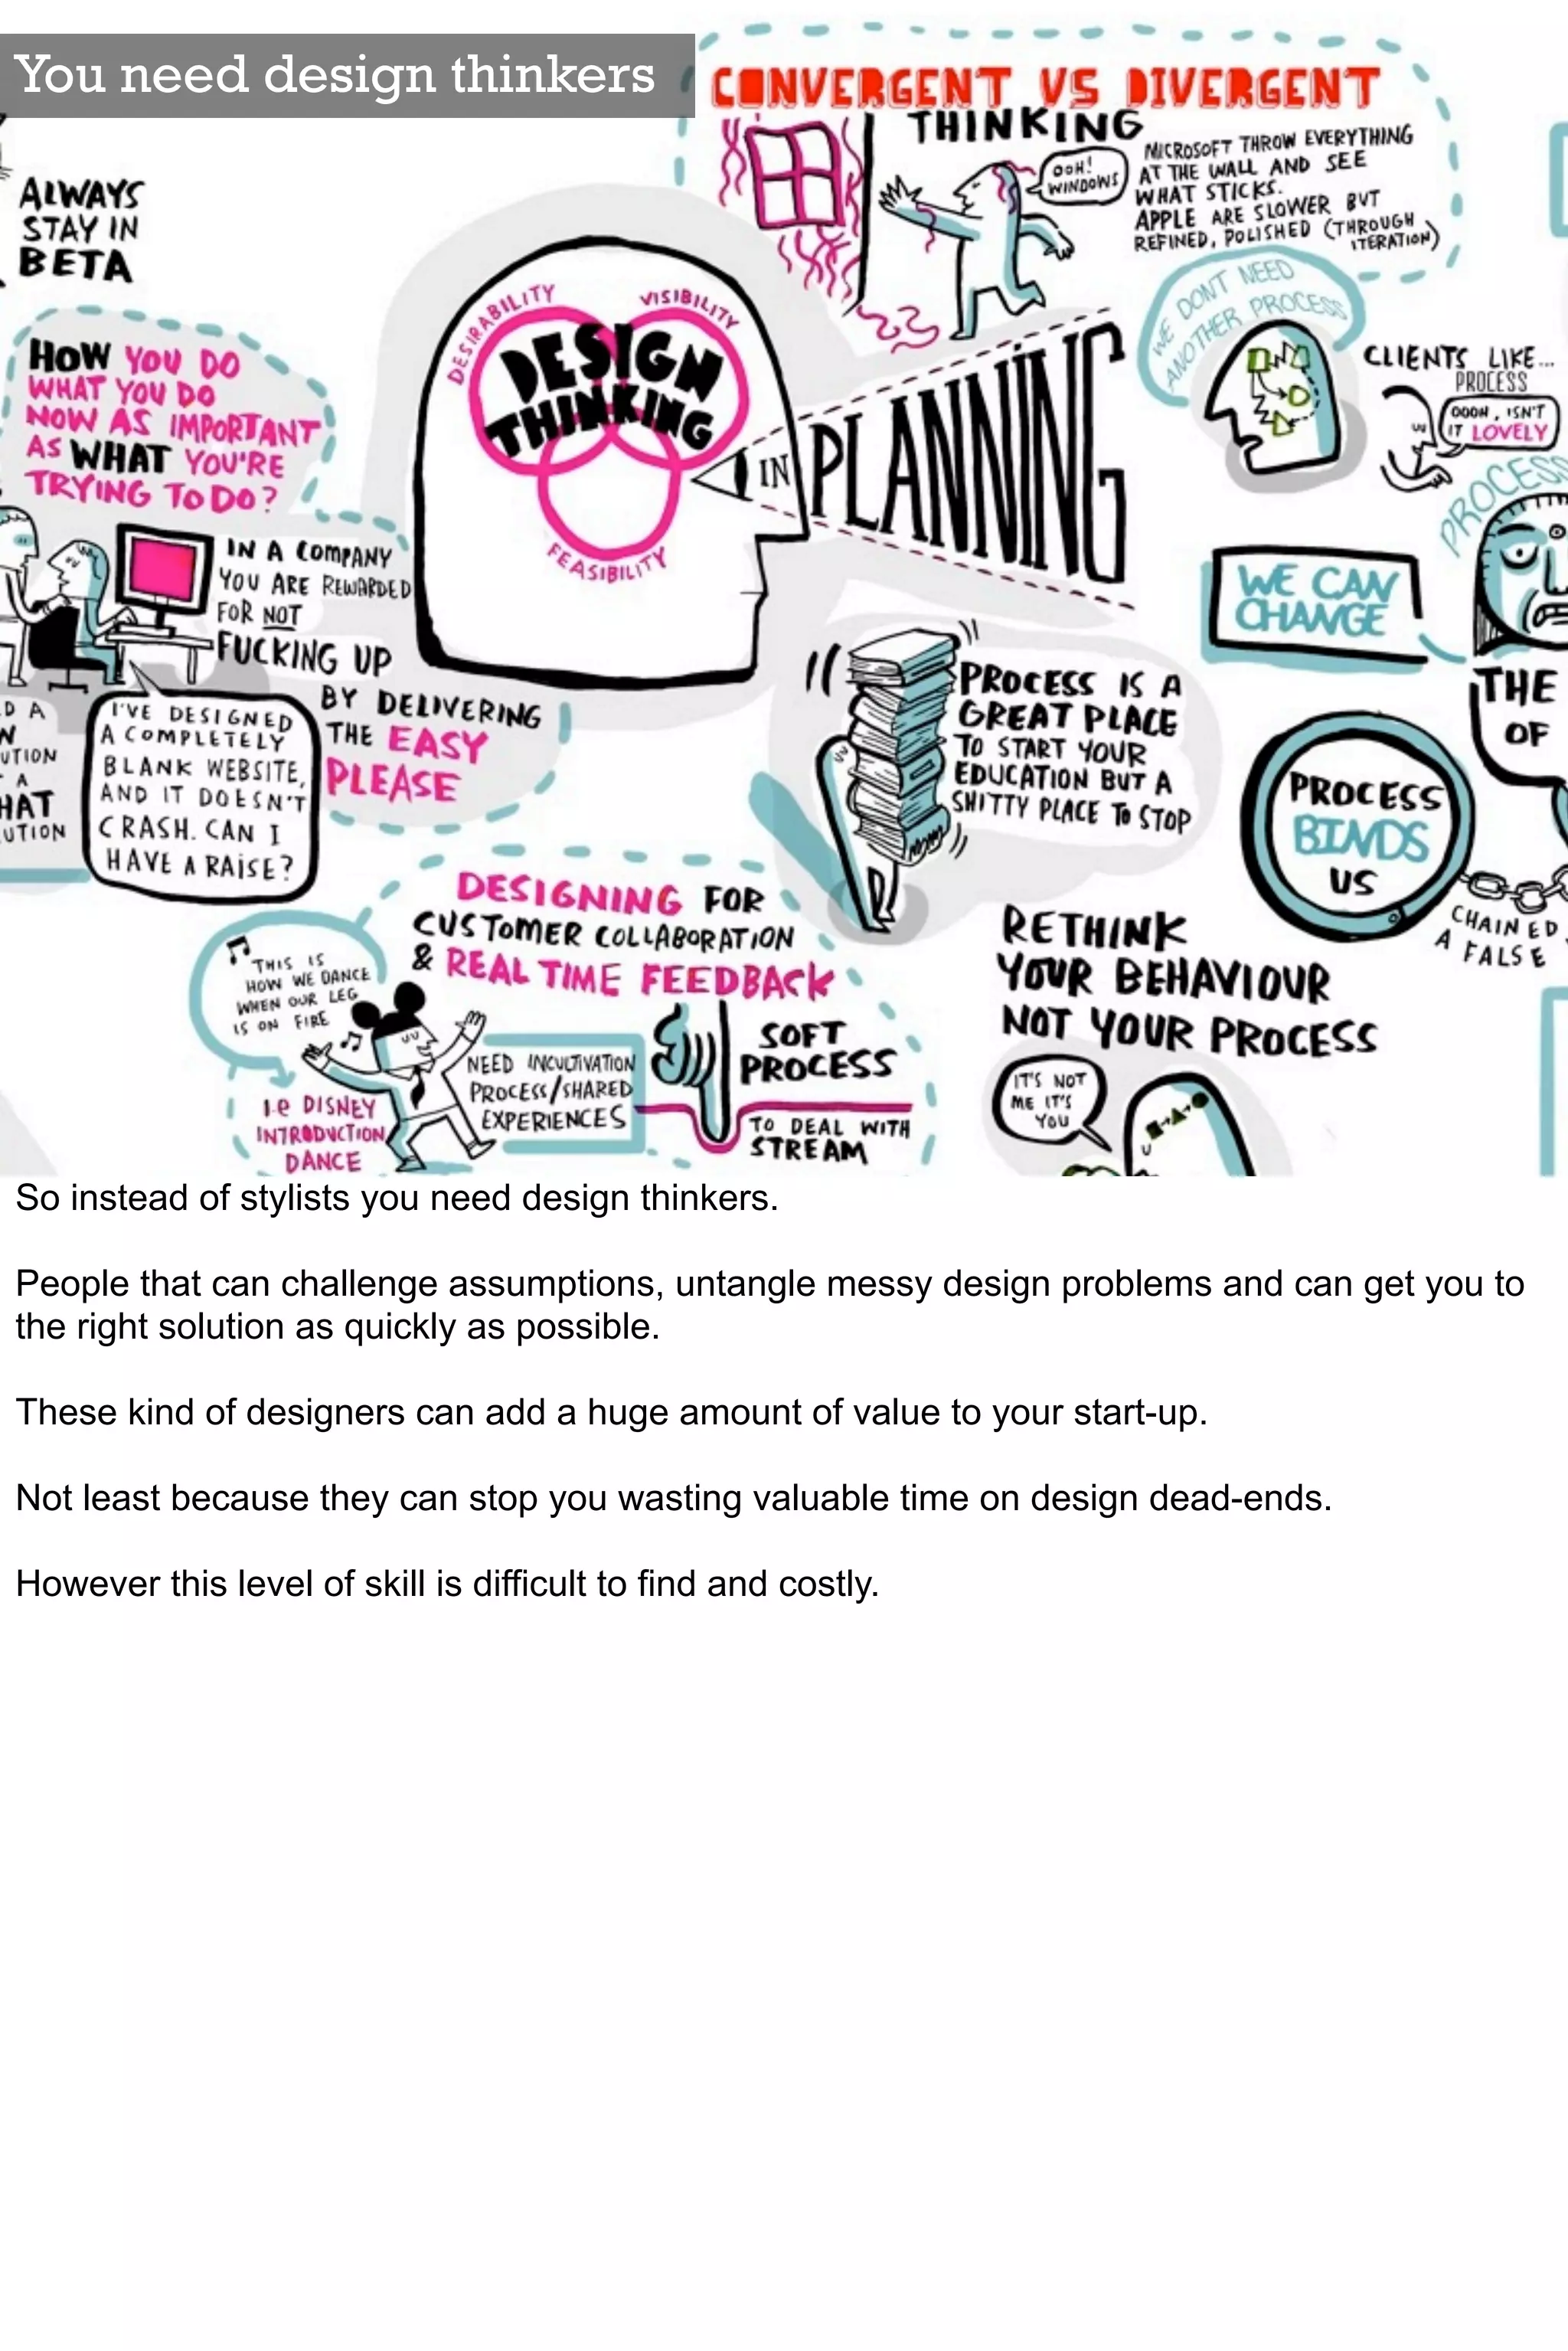 You need design thinkers
CONVERGENT VS DIVERGENT
THINKING
OOH!
WINDOWS
MICROSOFT THROW EVERYTHING
AT THE WALL AND SEE
WHAT STICKS.
APPLE ARE SLOWER BUT
REFINED, POLISHED (THROUGH
ITERATION)
ALWAYS
STAY IN
BETA
HOW YOU DO
WHAT YOU DO
NOW AS IMPORTANT
AS WHAT YOU'RE
TRYING TO DO?
DESIRABILITY
VISIBILITY
DESIGN
THINKING
FEASIBILITY
IN PLANNING
WE DONT NEED
ANOTHER PROCESS
CLIENTS LIKE...
PROCESS
OOOH, ISN'T
IT LOVELY
PROCESS
WE CAN
CHANGE
IN A COMPANY
YOU ARE REWARDED
FOR NOT
FUCKING UP
BY DELIVERING
THE EASY
PLEASE
D A
N
UTION
A
HAT
UTION
I'VE DESIGNED
A COMPLETELY
BLANK WEBSITE,
AND IT DOESN'T
CRASH. CAN I
HAVE A RAISE?
PROCESS IS A
GREAT PLACE
TO START YOUR
EDUCATION BUT A
SHITTY PLACE TO STOP
THE
OF
PROCESS
BINDS
US
CHAINED
A FALSE
DESIGNING FOR
CUSTOMER COLLABORATION
& REAL TIME FEEDBACK
THIS IS
HOW WE DANCE
WHEN OUR LEG
IS ON FIRE
I.e DISNEY
INTRODUCTION
DANCE
NEED INCULTIVATION
PROCESS/SHARED
EXPERIENCES
SOFT
PROCESS
TO DEAL WITH
STREAM
RETHINK
YOUR BEHAVIOUR
NOT YOUR PROCESS
IT'S NOT
ME IT'S
YOU
So instead of stylists you need design thinkers.
People that can challenge assumptions, untangle messy design problems and can get you to
the right solution as quickly as possible.
These kind of designers can add a huge amount of value to your start-up.
Not least because they can stop you wasting valuable time on design dead-ends.
However this level of skill is difficult to find and costly.